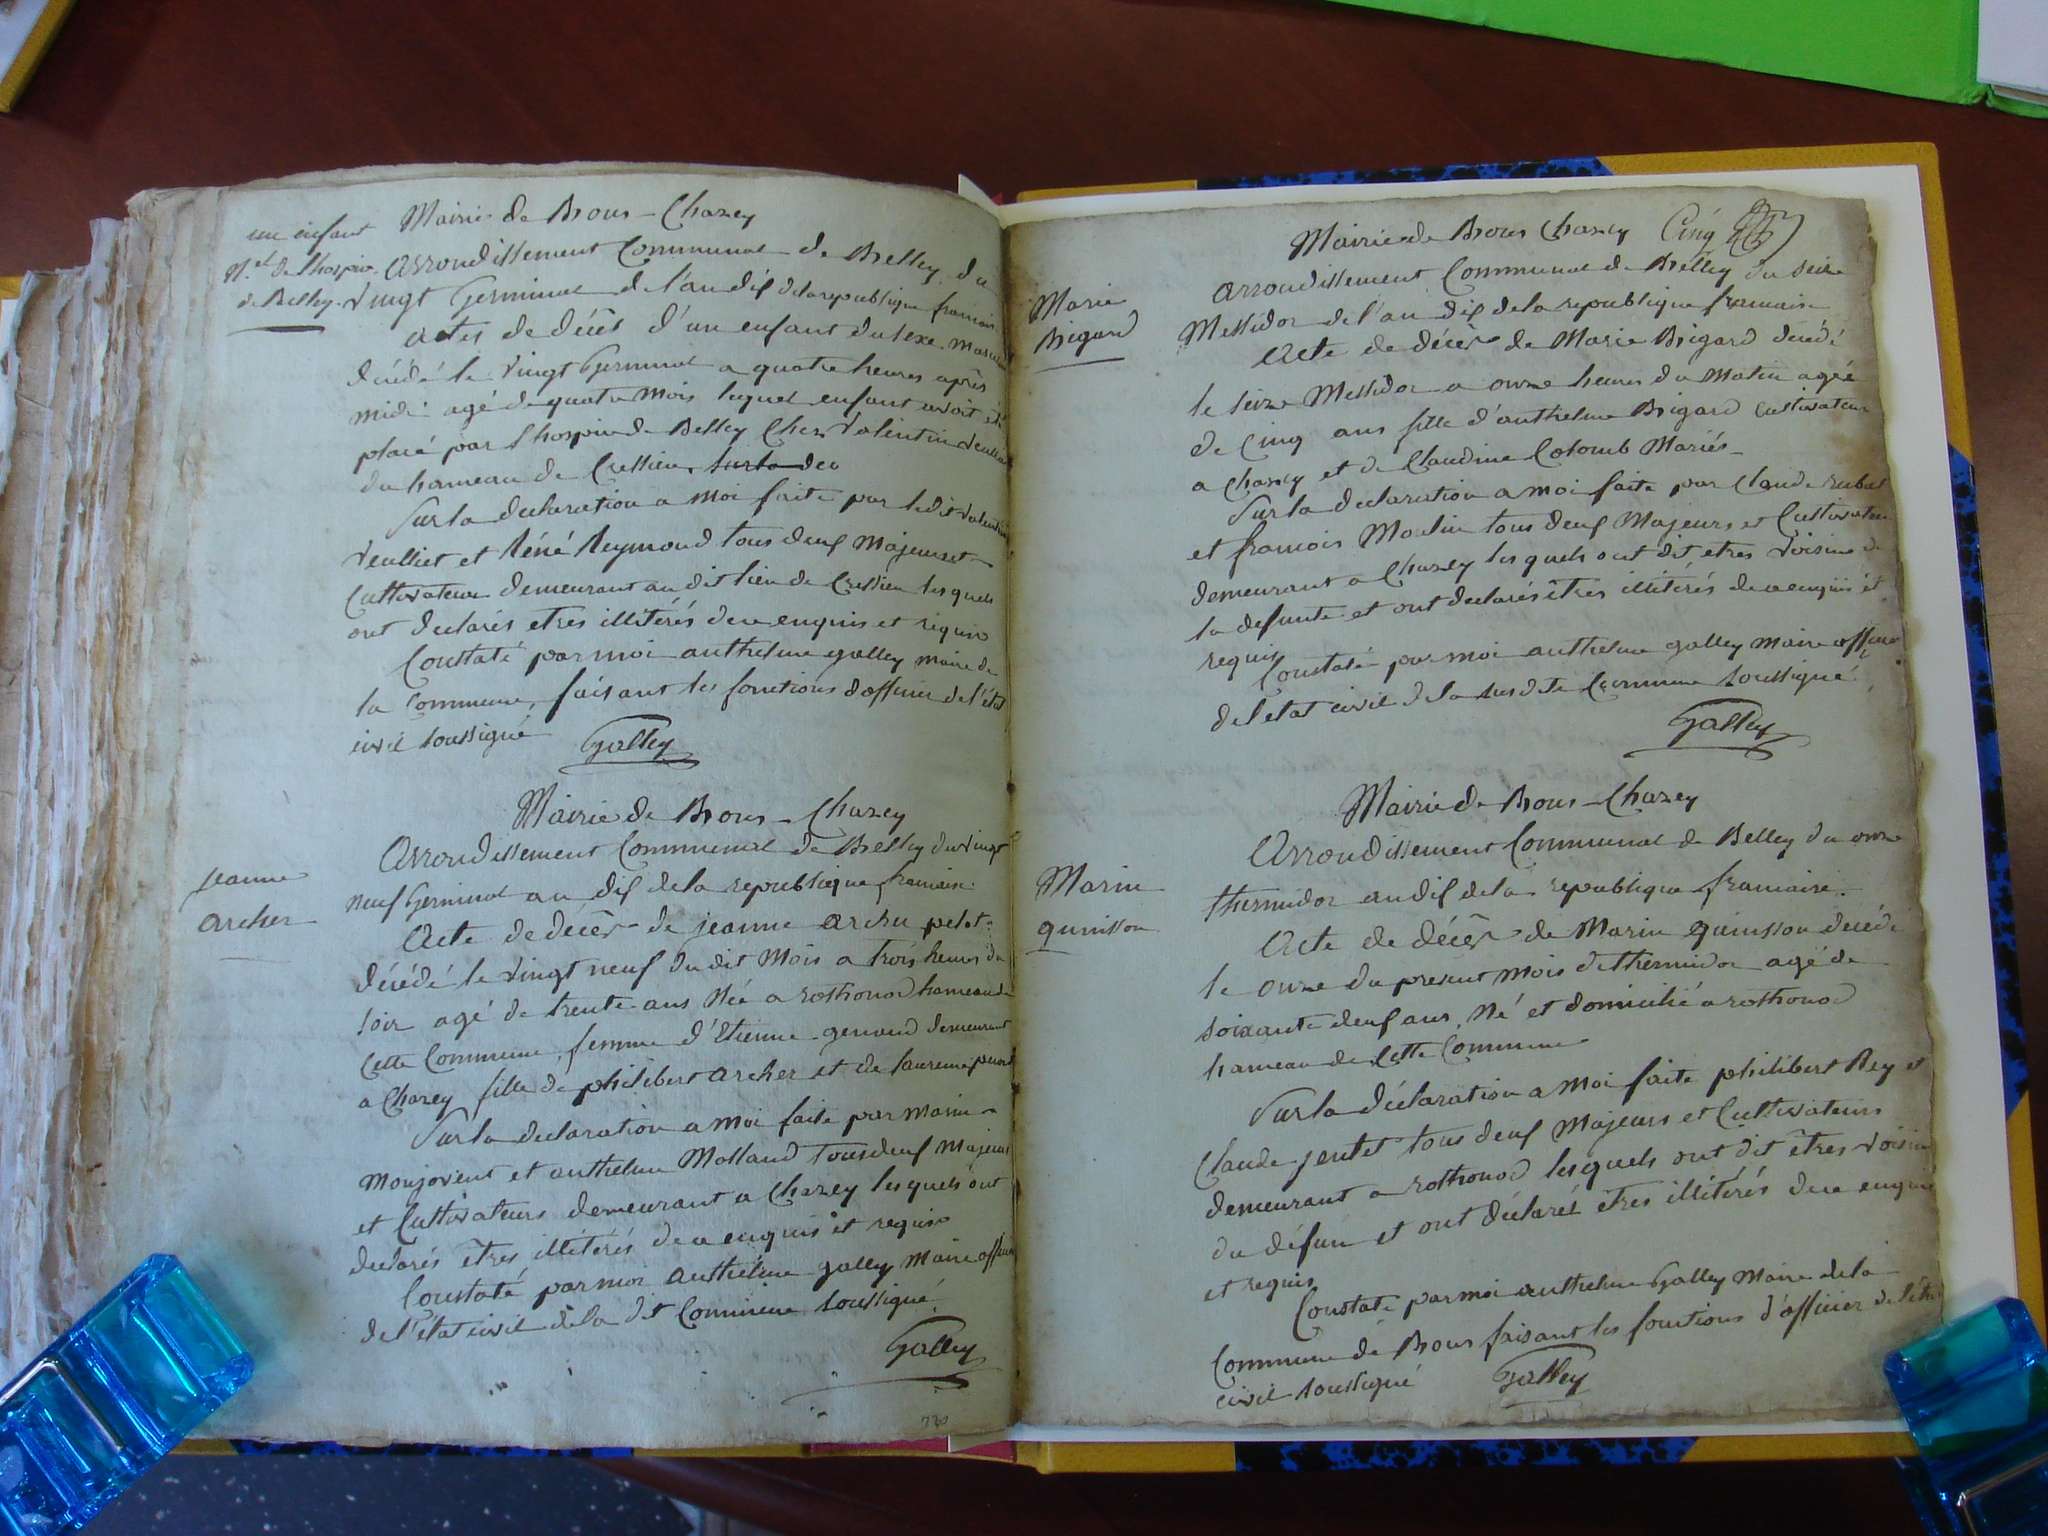 un enfant
N.el de lhospice
de Belley.
Mairie de Brous - Chazey
arrondissement Communal de Belley du
vingt Germinal de l'an dix de la republique francais
actes de décès d'un enfant du sexe masculin
décédé le vingt Germinal a quatre heures après
midi agé de quatre mois lequel enfant avoit été
placé par l'hospice de Belley chez Valentin Veulliet
du hameau de Cressieu sur la dec
Sur la declaration a moi faite par ledit Valentin
Veulliet et Réné Reymond tous deux majeurs et
Cultivateurs demeurant au dit lieu de Cressieu lesquels
ont declarés etres illitérés de ce enquis et requis
Constaté par moi anthelme galley maire de
la Commune, faisant les fonctions d'officier de l'état
civil soussigné
Galley
jeanne
archer
Mairie de Brous - Chazey
Arrondissement Communal de Belley du vingt
neuf Germinal an dix de la republique francaise
Acte de décès de jeanne archer
décédé le vingt neuf du dit mois a trois heures du
soir agé de trente ans Née a rothonod hameau de
cette Commune, femme d'Etienne genoud demeurant
a Chazey fille de philibert archer et de laurence
Sur la declaration a moi faite par marin
monjovent et anthelme Molland tous deux majeurs
et Cultivateurs demeurant a Chazey lesquels ont
declarés êtres illitérés de ce enquis et requis
Constaté par moi anthelme galley maire officier
de l'état civil de la dit Commune soussigné
Galley
730
Mairie de Brous Chazey Cinq
Marie
Brigard
arrondissement Communal de Belley du seize
Messidor de l'an dix de la republique francaise
Acte de décès de Marie Brigard decédé
le seize Messidor a onze heures du matin agée
de Cinq ans fille d'anthelme Brigard Cultivateur
a Chazey et de Claudine Colomb Mariés
Sur la declaration a moi faite par Claude
et francois Moulin tous deux Majeurs et Cultivateurs
demeurant a Chazey lesquels ont dit etres voisins de
la defunte et ont declarés êtres illitérés de ce enquis et
requis
Constaté par moi anthelme galley maire officier
de l'etat civil de la susdite Commune soussigné
Galley
Marin
quinsson
Mairie de Brous - Chazey
Arrondissement Communal de Belley du onze
thermidor an dix de la republique francaise
Acte de décès de Marin quinsson decédé
le onze du present mois de thermidor agé de
soixante deux ans, Né et domicilié a rothonod
hameau de cette Commune
Sur la déclaration a moi faite philibert Rey et
Claude jentet tous deux majeurs et Cultivateurs
demeurant a rothonod lesquels ont dit êtres voisin
du défun et ont déclarés êtres illitérés de ce enquis
et requis
Constaté par moi anthelme Galley Maire de la
Commune de Brous faisant les fonctions d'officier de l'état
civil soussigné
Galley